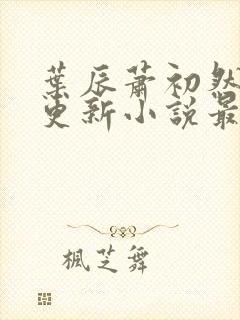 葉辰蕭初然
更新小說最
楓芝舞